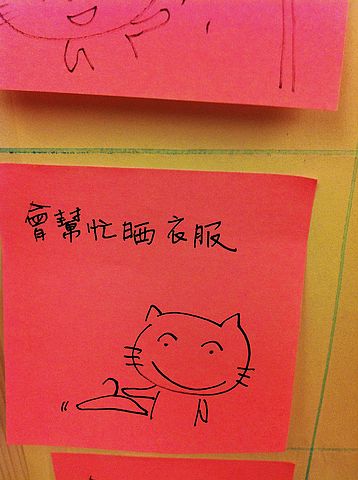 會幫忙晒衣服